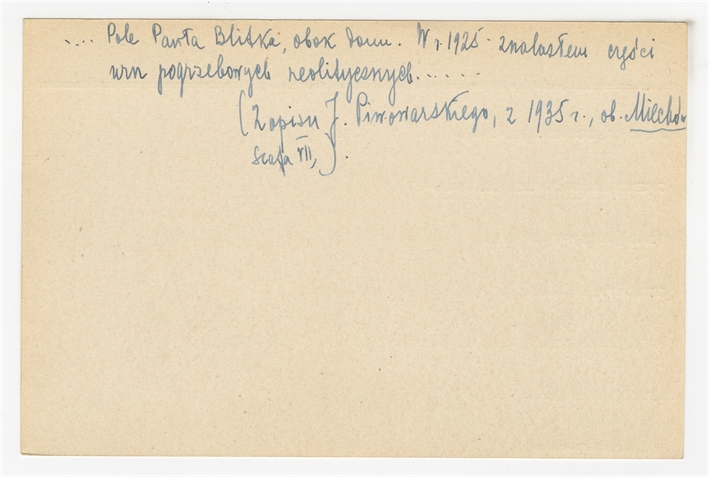 .... Pole Pawła Blitka, obok domu. W r. 1925 znalazłem części
urn pogrzebowych neolitycznych......
(Zapisu J. Piwowarskiego, z 1935 r., ob. Miechów
szafa VII,).